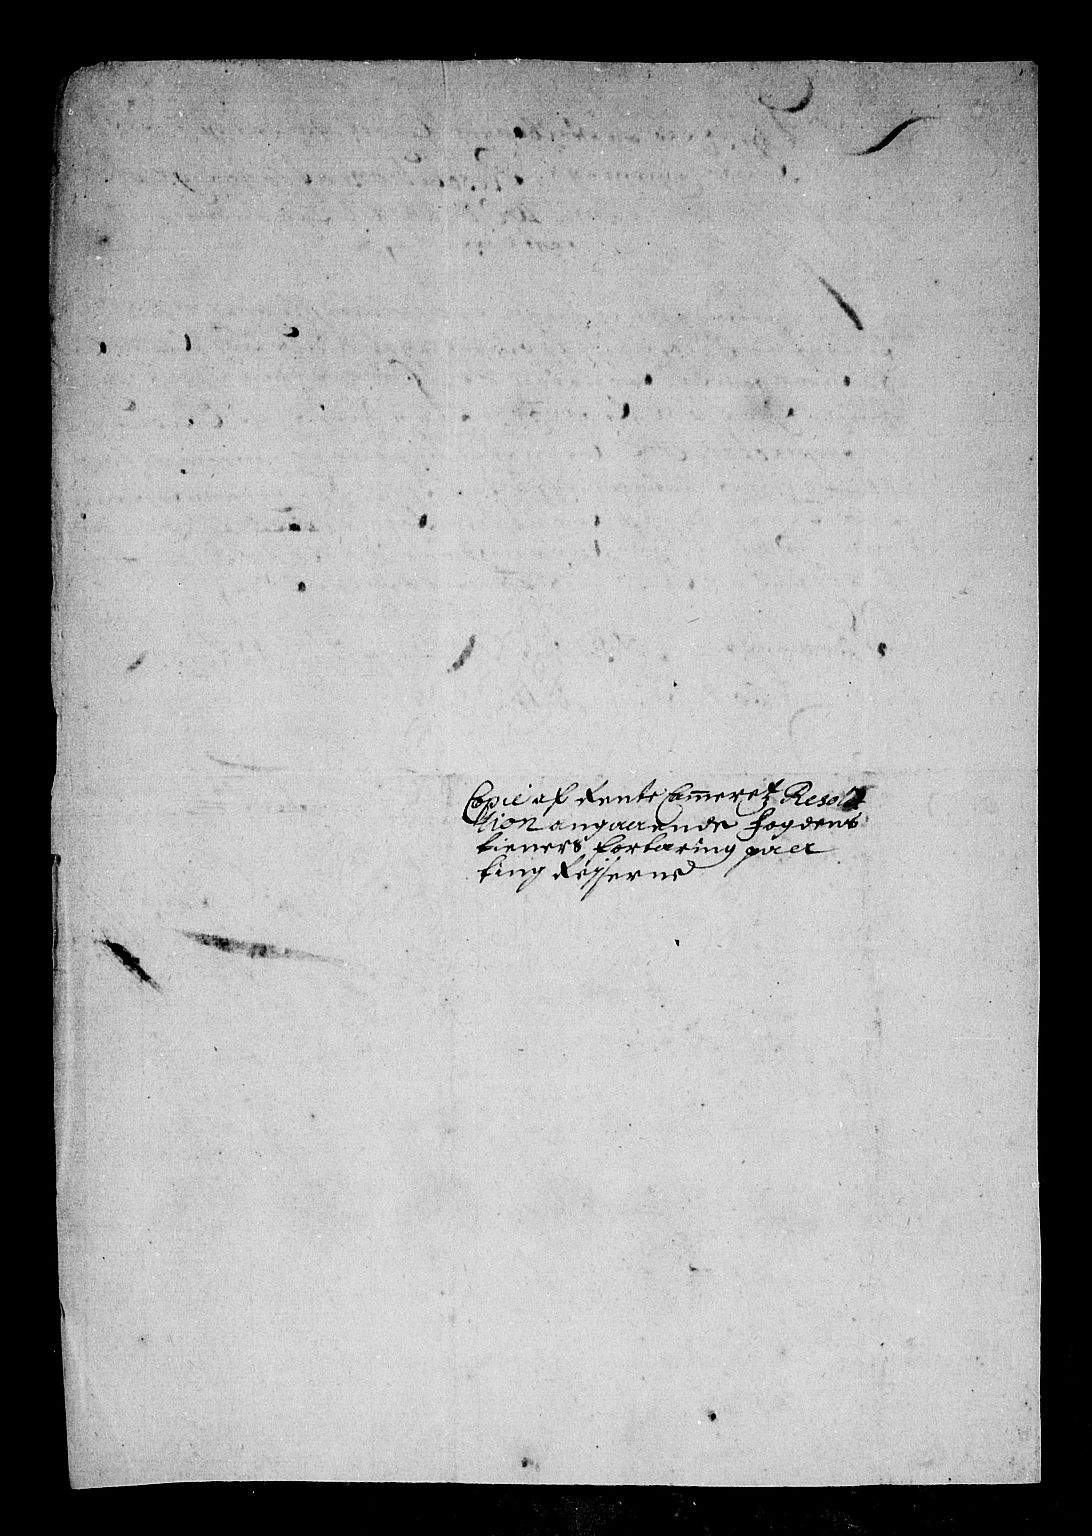 Copie af Rente Cammeretz Resolu
tion angaaende fogdens
tieners fortæring paa
ting Reiserne